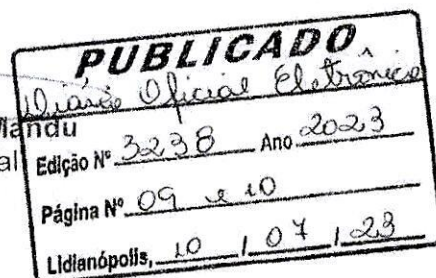 PUBLICADO
Diário Oficial Eletrônico
Mandu
al
Edição Nº 3238 Ano 2023
Página Nº 09 e 10
Lidianópolis, 10 / 07 / 23